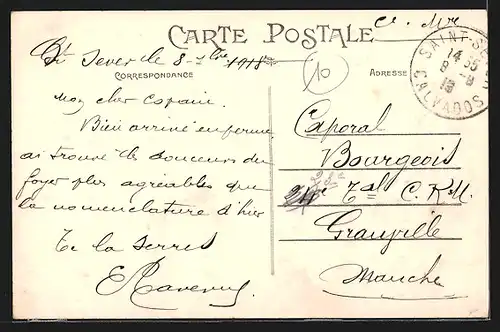 Cie Mre
CARTE POSTALE
St Sever le 8-9bre 1918
CORRESPONDANCE
10
ADRESSE
SAINT-SEVER
14 35
8 -9
18
CALVADOS
Mon cher Copain.
Bien arrivé en ferme
ai trouvé les douceurs du
foyer plus agréables que
la nomenclature d'hier
Te la serres
Caporal
Bourgeois
24e C.R.M.
Granville
Manche